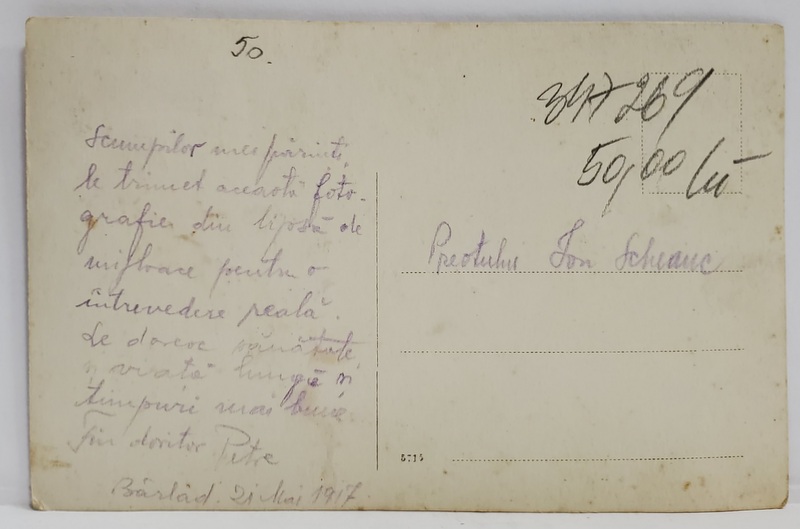 50.
347269
50,00 lei
Scumpilor mei părinți,
le trimet această foto-
grafie din lipsă de
mijloace pentru o
întrevedere reală.
Le doresc sănătate,
și viață lungă și
timpuri mai bune.
Fiu doritor Petre
Bârlad. 21 Mai 1917
Preotului Ion
5715